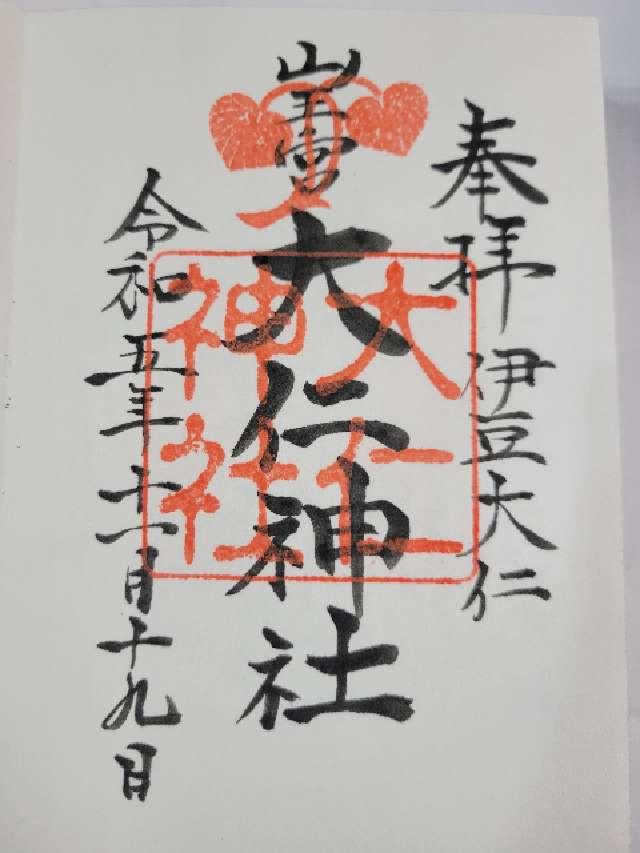 奉拝 伊豆大仁
山王宮
大仁神社
大仁
神社
令和五年十一月十九日